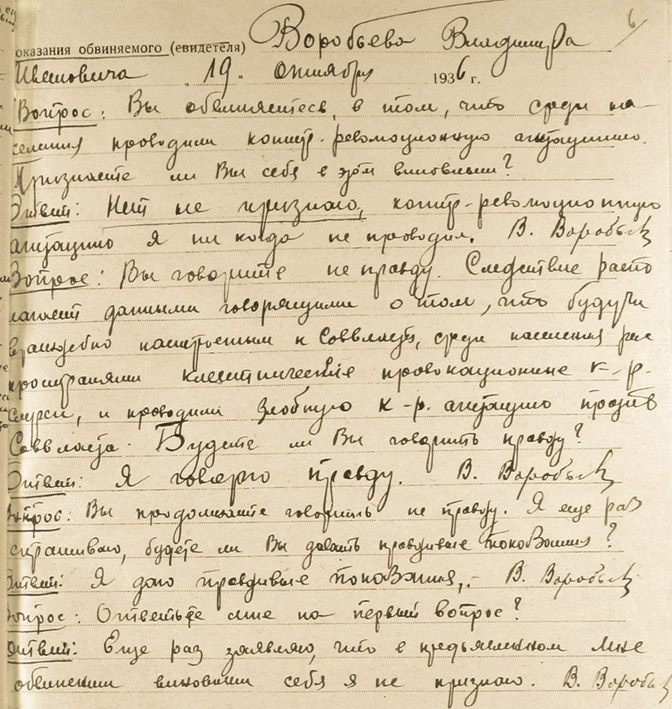 6
оказания обвиняемого (свидетеля) Воробьева Владимира
Ивановича „19 октября 1936 г.
Вопрос: Вы обвиняетесь, в том, что среди на-
селения проводили контр-революционную агитацию.
Признаете ли Вы себя в этом виновным?
Ответ: Нет не признаю, контр-революционную
агитацию я ни когда не проводил. В. Воробьев
Вопрос: Вы говорите не правду. Следствие распо
лагает данными говорящими о том, что будучи
враждебно настроенным к Соввласти, среди населения рас
пространяли клеветнические провокационные к-р-
слухи, и проводили злобную к-р. агитацию против
Соввласти. Будете ли Вы говорить правду?
Ответ: Я говорю правду. В. Воробьев
Вопрос: Вы продолжаете говорить не правду. Я еще раз
спрашиваю, будете ли Вы давать правдивые показания?
Ответ: Я даю правдивые показания,. В. Воробьев
Вопрос: Ответьте мне на первый вопрос?
Ответ: Еще раз заявляю, что в предъявленном мне
обвинении виновным себя я не признаю. В. Воробьев